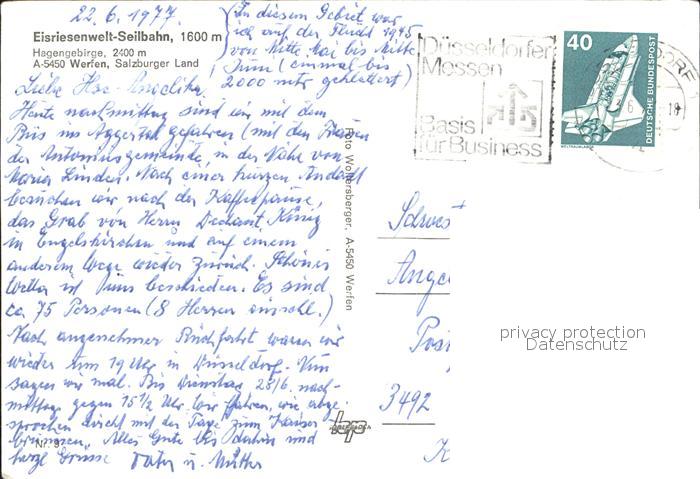 22.6.1977.
(In diesem Gebiet war
ich auf der Flucht 1945
von Mitte Mai bis Mitte
Juni (einmal bis
2000 mtr geklettert)
Eisriesenwelt-Seilbahn, 1600 m
Hagengebirge, 2400 m
A-5450 Werfen, Salzburger Land
Liebe
Heute nachmittag sind wir mit dem
Bus ins Aggertal gefahren (mit den Frauen
der Antoniusgemeinde, in der Nähe von
Maria Linden. Nach einer kurzen Andacht
besuchen wir nach der Kaffeepause,
das Grab von Herrn Dechant König
in Engelskirchen und auf einem
anderem Wege wieder zurück. Schönes
Wetter ist uns beschieden. Es sind
ca. 75 Personen (8 Herren einschl.)
Nach angenehmer Rückfahrt waren wir
wieder um 19 Uhr in Düsseldorf. Nun
sagen wir mal. Bis Dienstag 28/6. nach-
mittags gegen 15½ Uhr. Wir fahren, wie abge-
sprochen direkt mit der Taxe zum
Alles Gute bis dahin und
herzl Grüsse Vater u. Mutter
Nr. 97
Foto Woltersberger, A-5450 Werfen
Düsseldorfer
Messen
Basis
für Business
40
DEUTSCHE BUNDESPOST
WELTRAUMLABOR
18
Schwest
Ange
Post
3492
K
privacy protection
Datenschutz